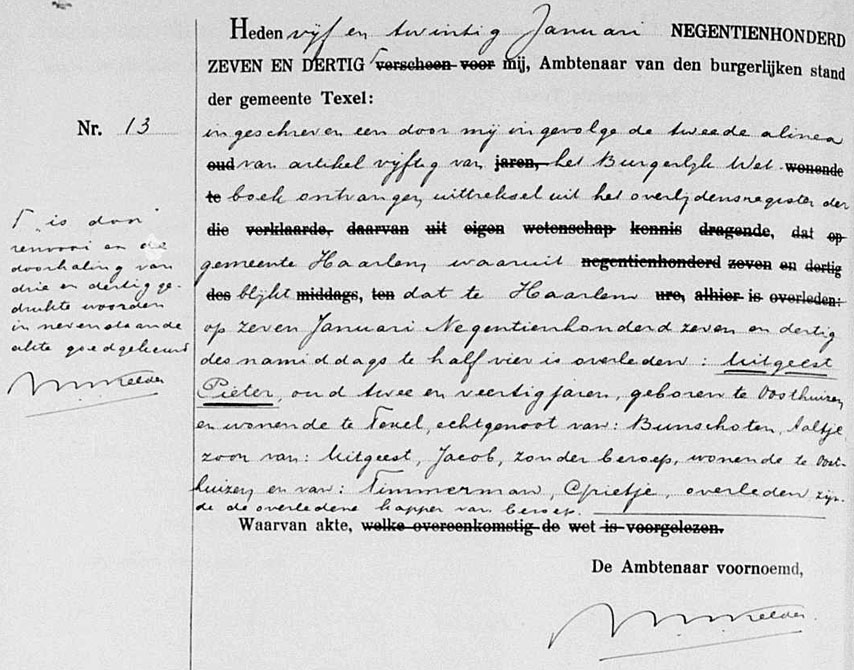 Heden vijf en twintig Januari NEGENTIENHONDERD
ZEVEN EN DERTIG verscheen voor mij, Ambtenaar van den burgerlijken stand
der gemeente Texel:
Nr. 13
ingeschreven een door mij ingevolge de tweede alinea
oud van artikel vijftig van jaren, het Burgerlijk Wet- wonende
te boek ontvangen uittreksel uit het overlijdensregister der
die verklaarde, daarvan uit eigen wetenschap kennis dragende, dat op
gemeente Haarlem, waaruit negentienhonderd zeven en dertig
des blijkt middags, ten dat te Haarlem ure, alhier is overleden:
op zeven Januari Negentienhonderd zeven en dertig
des namiddags te half vier is overleden: Uitgeest
Pieter, oud twee en veertig jaren, geboren te Oosthuizen
en wonende te Texel, echtgenoot van: Bunschoten, Aaltje
zoon van: Uitgeest, Jacob, zonder beroep, wonende te Oost-
huizen en van: Timmerman, Grietje, overleden zijn-
de de overledene kapper van beroep.
Waarvan akte, welke overeenkomstig de wet is voorgelezen.
De Ambtenaar voornoemd,
Kelder
is door
renvooi en de
doorhaling van
drie en dertig ge-
drukte woorden
in nevenstaande
akte goedgekeurd
Kelder